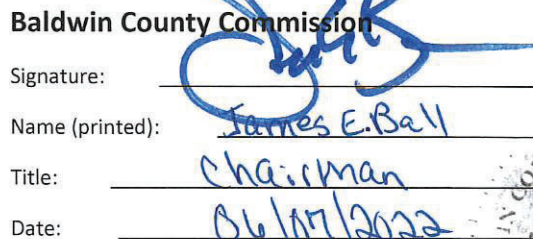 Baldwin County Commission
Signature:
Name (printed): James E. Ball
Title: Chairman
Date: 06/07/2022